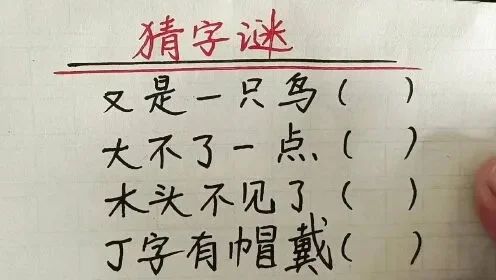 猜字谜
又是一只鸟( )
大不了一点( )
木头不见了( )
丁字有帽戴( )